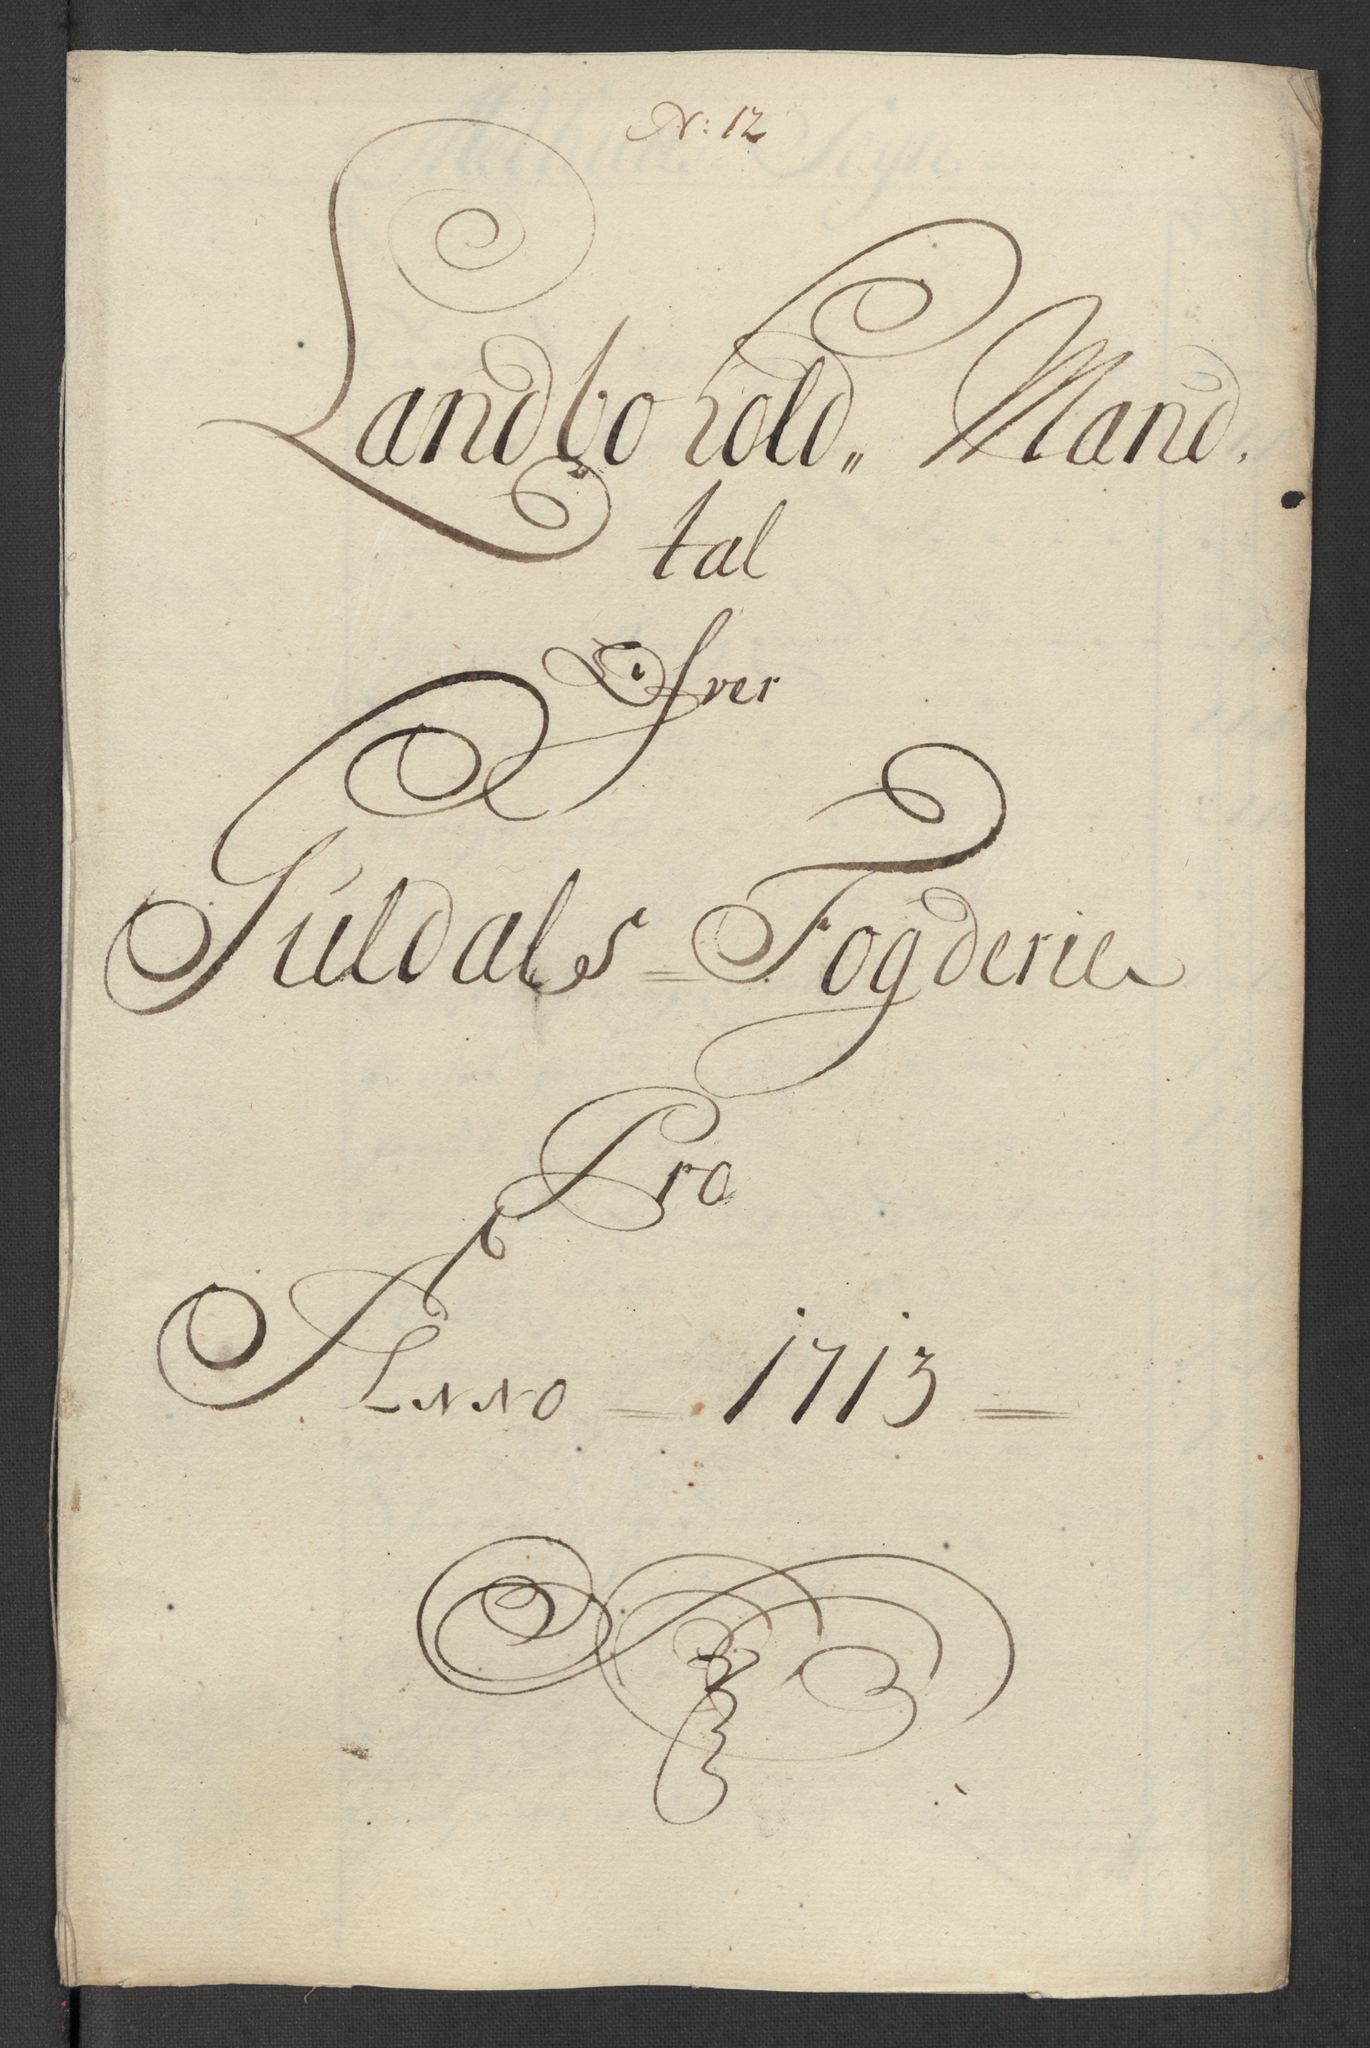 N: 12
Landbohold„ Mand.
tal
Ofver
Guldals = Fogderie
Pro
Anno = 1713 =